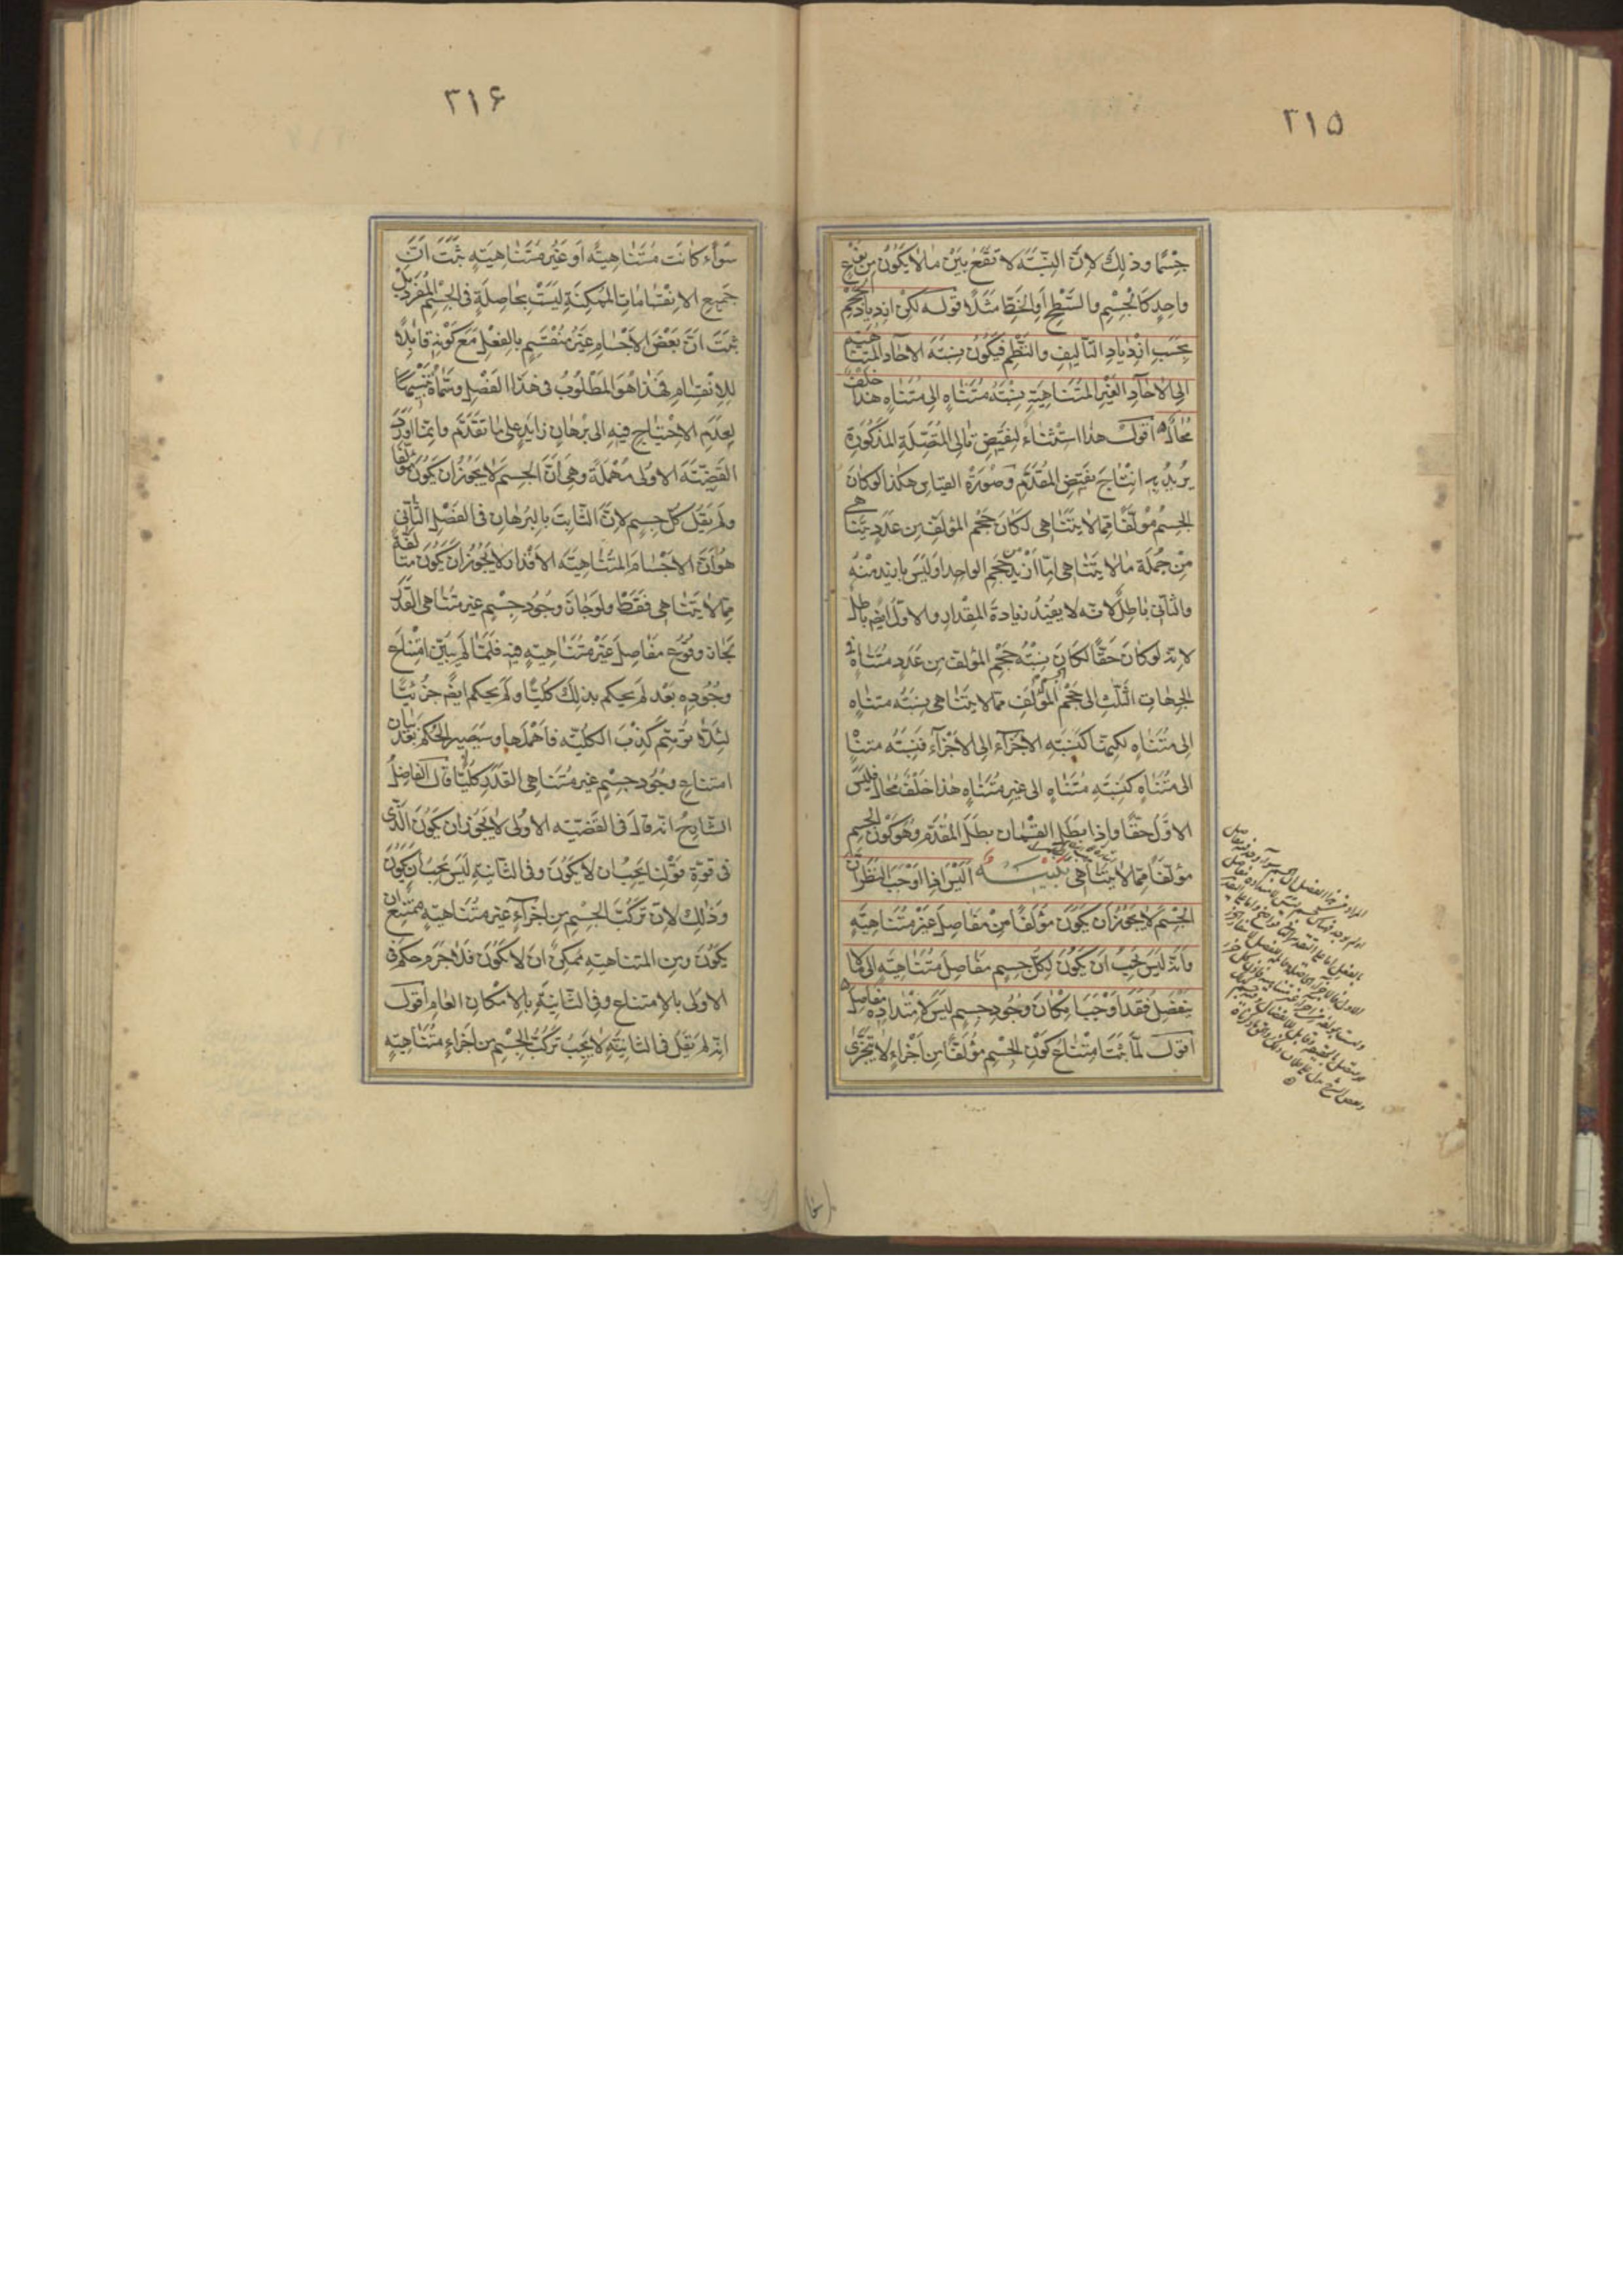 ٣١٥
جسما وذلك لان النسبة لا تقع بين ما لا يكون من نوع
واحد كالجسم والسطح او الخط مثلا قوله لكن ازدياد الحجم
بحسب ازدياد التأليف والنظم فيكون نسبة الاحاد المتناهية
الى الاحاد الغير المتناهية نسبة متناه الى متناه هذا خلف
محال اقول هذا استثناء لنقيض تالى المتصلة المذكورة
يريد به انتاج نقيض المقدم وصورة القياس هكذا لو كان
الجسم مؤلفا مما لا يتناهى لكان حجم المؤلف من عدد يتناهى
من جملة ما لا يتناهى اما ازيد من حجم الواحد او ليس بازيد منه
والثانى باطل لانه لا يفيد زيادة المقدار والاول ايضا باطل
لانه لو كان حقا لكان نسبة حجم المؤلف من عدد متناه فى
الجهات الثلث الى حجم المؤلف مما لا يتناهى نسبة متناه
الى متناه لكنها كنسبة الاجزاء الى الاجزاء فنسبة متناه
الى متناه كنسبة متناه الى غير متناه هذا خلف محال فليس
الاول حقا واذا بطل القسمان بطل المقدم وهو كون الجسم
مؤلفا مما لا يتناهى تنبيه اليس اذا اوجب النظر ان
الجسم لا يجوز ان يكون مؤلفا من مفاصل غير متناهية
وانه ليس يجب ان يكون لكل جسم مفاصل متناهية الى ما لا
ينفصل فقد اوجب امكان وجود جسم ليس لامتداده مفاصل
اقول لما ثبت امتناع كون الجسم مؤلفا من اجزاء لا تتجزى
٣١۶
سواء كانت متناهية او غير متناهية ثبت ان
جميع الانقسامات الممكنة ليست بحاصلة فى الجسم المفرد بل
ثبت ان بعض الاجسام غير منقسم بالفعل مع كونه قابلا
للانقسام فهذا هو المطلوب فى هذا الفصل وسماه تنبيها
لعدم الاحتياج فيه الى برهان زايد على ما تقدم وانما اورد
القضية الاولى مهملة وهى ان الجسم لا يجوز ان يكون مؤلفا
ولم يقل كل جسم لان الثابت بالبرهان فى الفصل الثانى
هو ان الاجسام المتناهية الاقدار لا يجوز ان يكون متالفة
مما لا يتناهى فقط ولو جاز وجود جسم غير متناهى القدر
لجاز وقوع مفاصل غير متناهية فيه فلما لم يبين امتناع
وجوده بعد لم يحكم بذلك كليا ولم يحكم ايضا جزئيا
لئلا يوهم كذب الكلية فاهملها وسيصير الحكم بعد بيان
امتناع وجود جسم غير متناهى القدر كليا قال الفاضل
الشارح انه قال فى القضية الاولى لا يجوز ان يكون الذى
فى قوة قولنا يجب ان لا يكون وفى الثانية ليس يجب ان يكون
وذلك لان تركب الجسم من اجزاء غير متناهية ممتنع ان
يكون ومن المتناهية ممكن ان لا يكون فلا جرم حكم فى
الاولى بالامتناع وفى الثانية بالامكان العام اقول
انه لم يقل فى الثانية لا يجب تركب الجسم من اجزاء متناهية